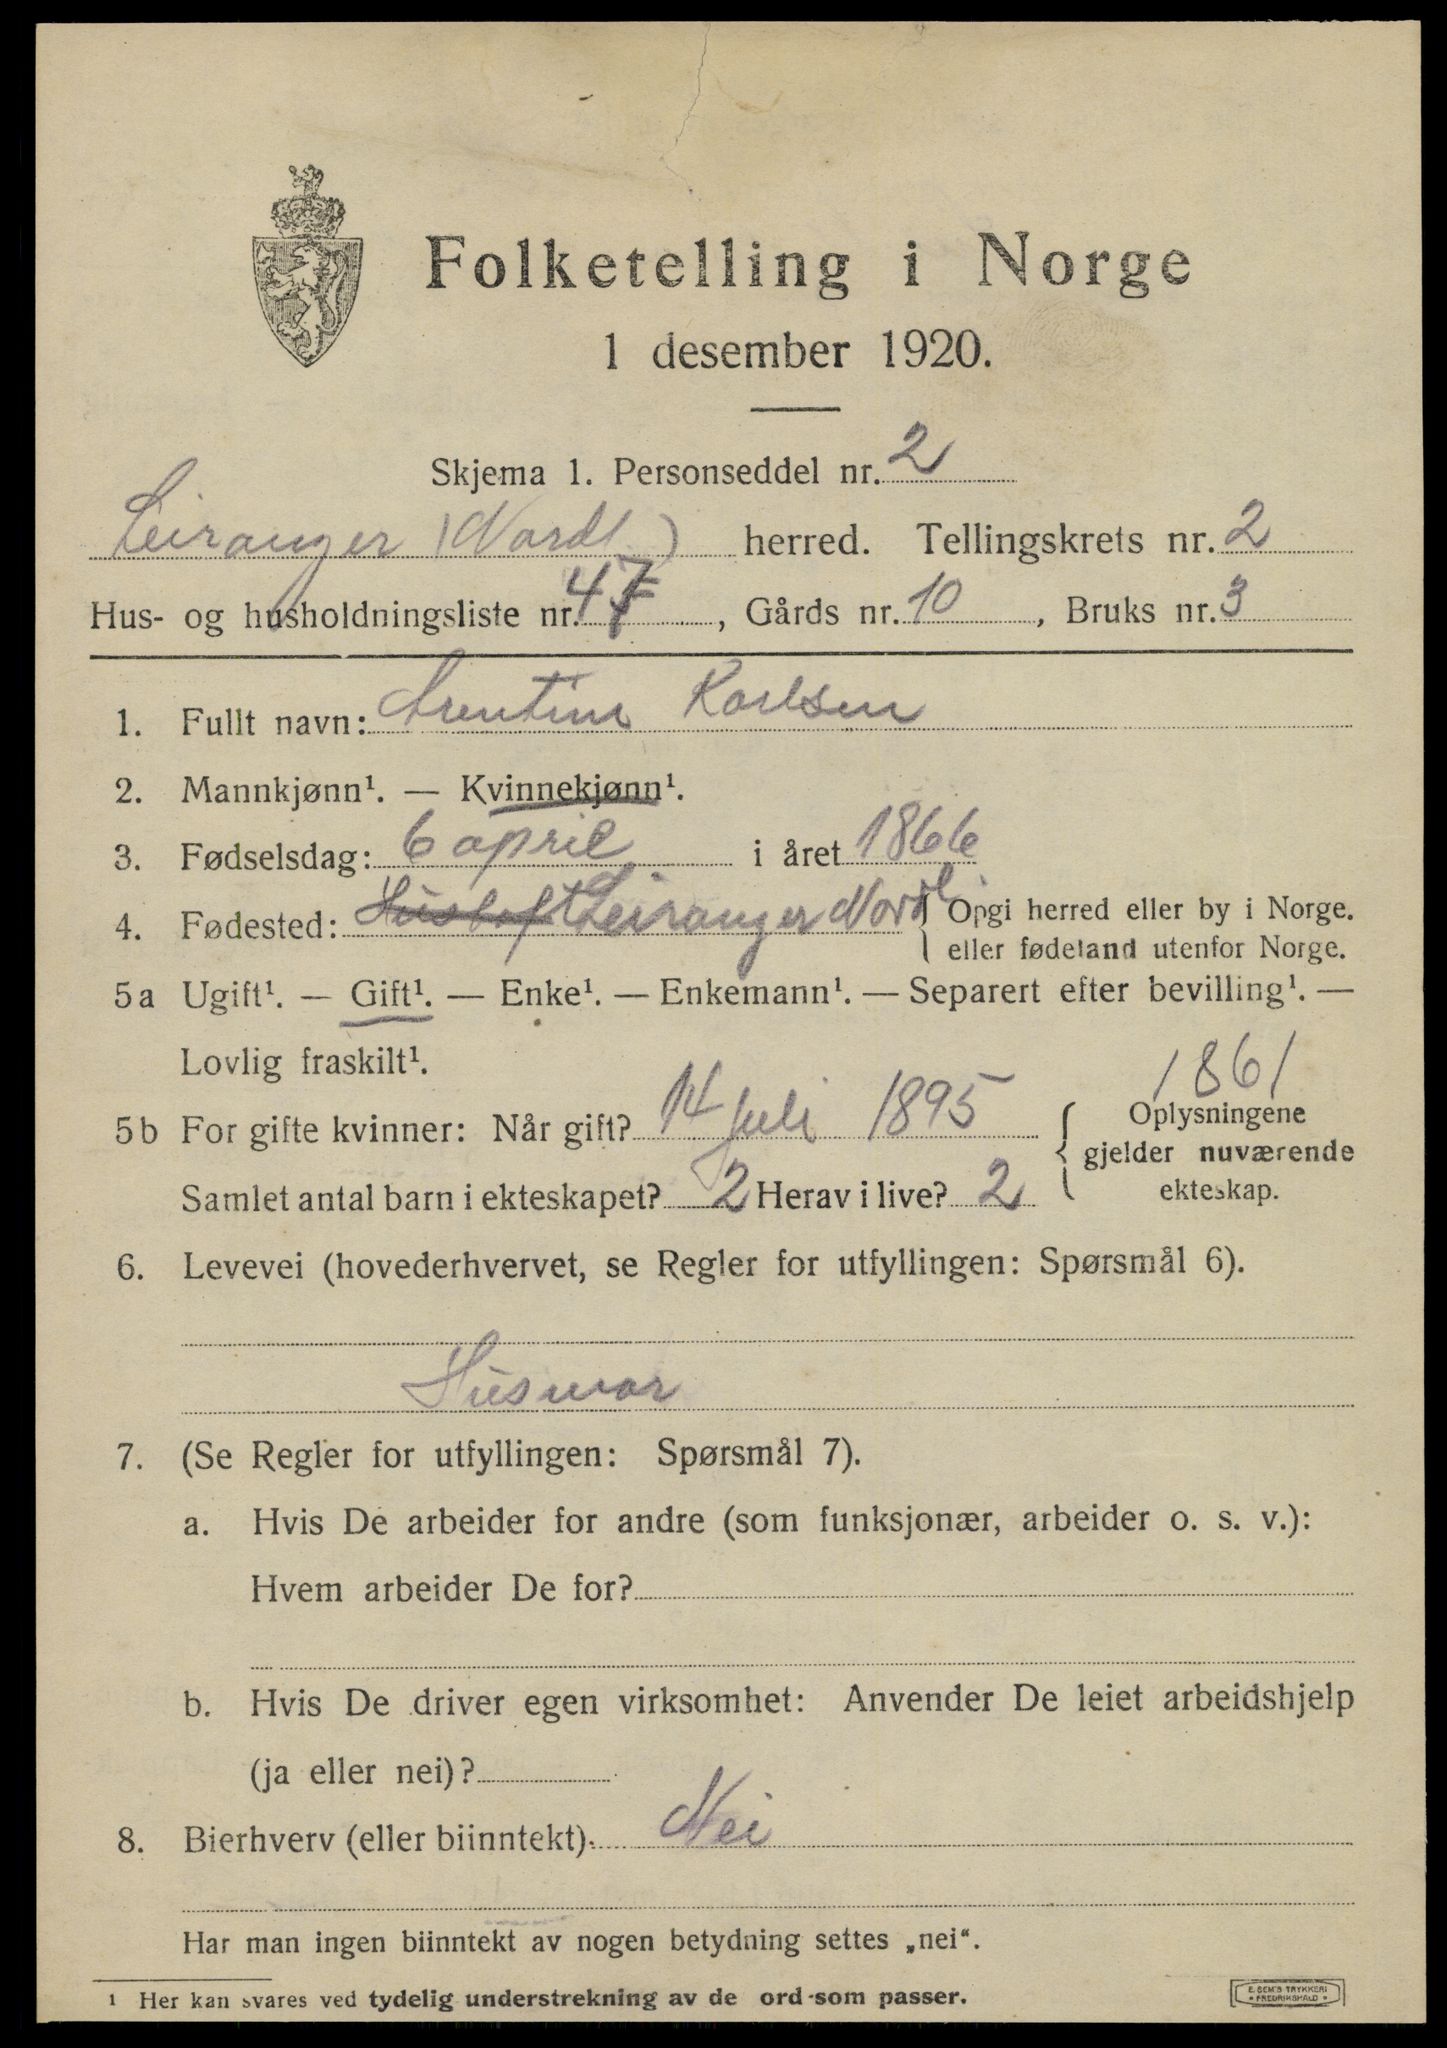 Folketelling i Norge
1 desember 1920.
Skjema 1. Personseddel nr. 2
Leiranger (Nordl.) herred. Tellingskrets nr. 2
Hus- og husholdningsliste nr. 47, Gårds nr. 10, Bruks nr. 3
1. Fullt navn: Arentine Karlsen
2. Mannkjønn¹. — Kvinnekjønn¹.
3. Fødselsdag: 6 april i året 1866
4. Fødested: Leiranger Nordl. { Opgi herred eller by i Norge.
eller fødeland utenfor Norge.
5a Ugift¹. — Gift¹. — Enke¹. — Enkemann¹. — Separert efter bevilling¹. —
Lovlig fraskilt¹.
1861
5b For gifte kvinner: Når gift? 14 Juli 1895 { Oplysningene
gjelder nuværende
ekteskap.
Samlet antal barn i ekteskapet? 2 Herav i live? 2
6. Levevei (hovederhvervet, se Regler for utfyllingen: Spørsmål 6).
Husmor
7. (Se Regler for utfyllingen: Spørsmål 7).
a. Hvis De arbeider for andre (som funksjonær, arbeider o. s. v.):
Hvem arbeider De for?
b. Hvis De driver egen virksomhet: Anvender De leiet arbeidshjelp
(ja eller nei)?
8. Bierhverv (eller biinntekt) Nei
Har man ingen biinntekt av nogen betydning settes „nei“.
¹ Her kan svares ved tydelig understrekning av de ord som passer.
E. SEM'S TRYKKERI
• FREDRIKSHALD •